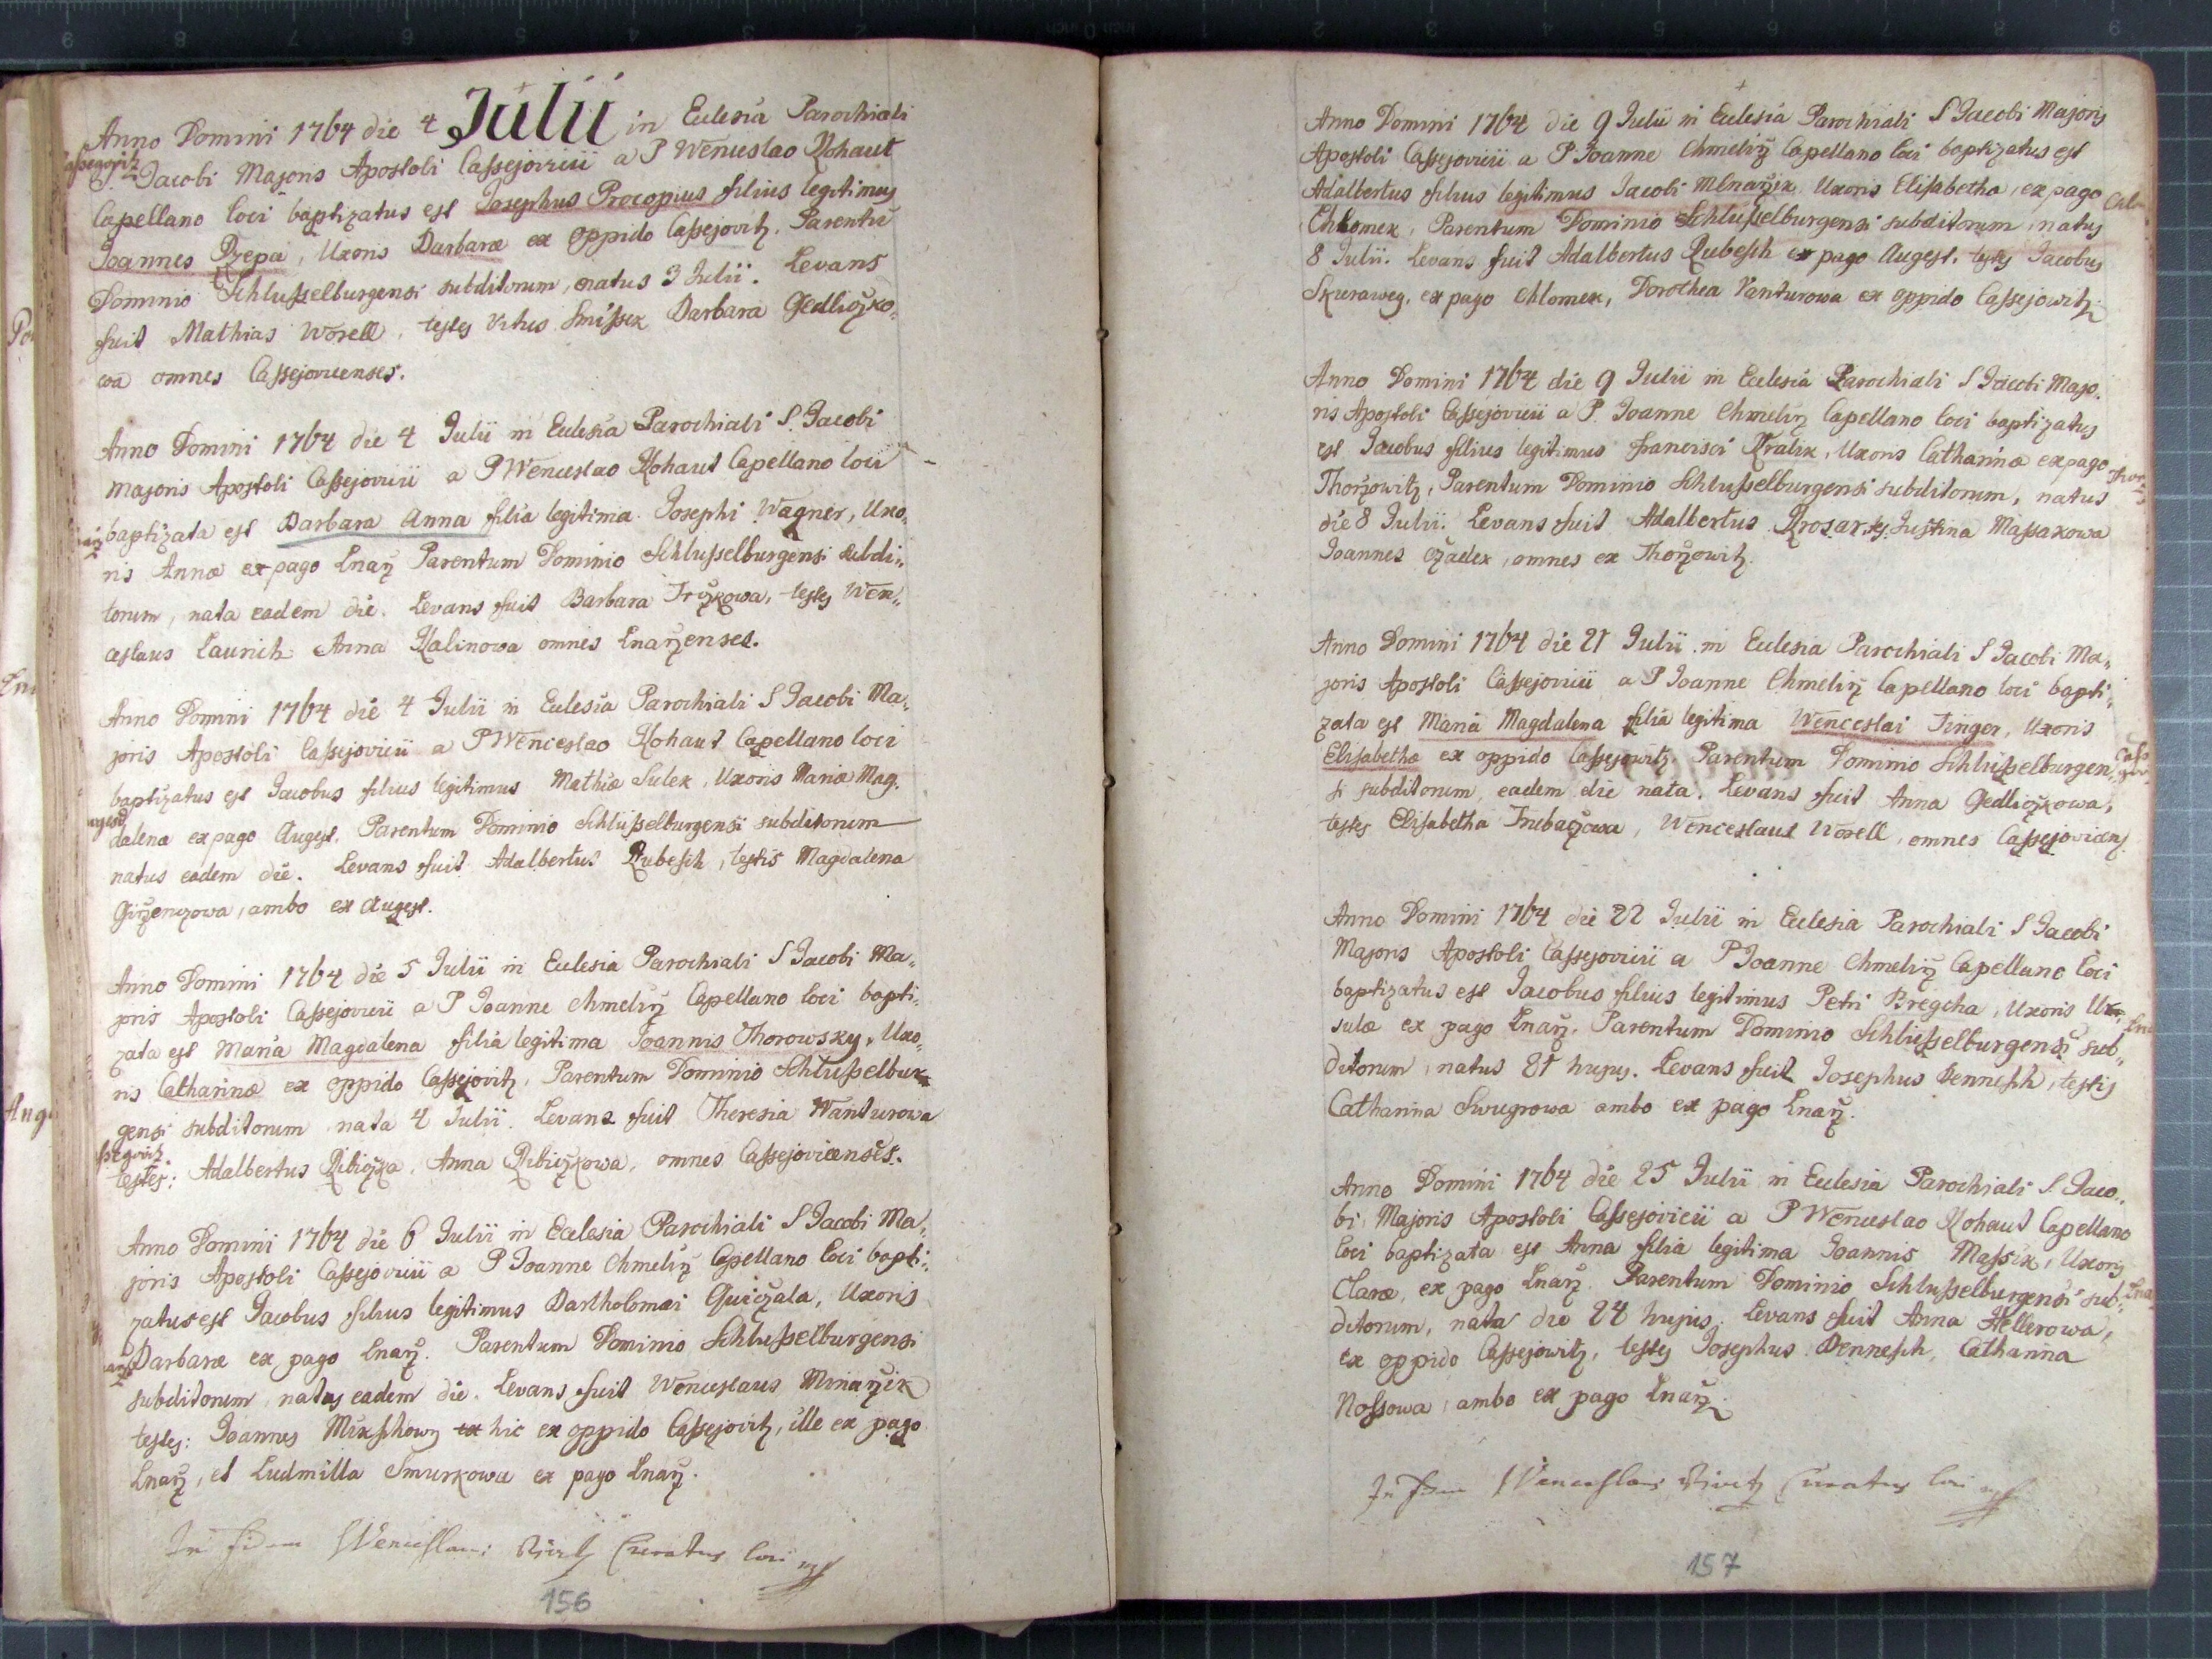 Anno Domini 1764 die 4 Julii in Eclesia Parochiali
S. Jacobi Majoris Apostoli Cassejovicii a P Wenceslao Kohaut
Capellano loci baptizatus est Josephus Procopius filius legitimus
Joannes Rzepa, Uxoris Barbaræ ex oppido Cassejovitz. Parentũ
Dominio Schlusselburgensi subditorum, natus 3 Julii. Levans
fuit Mathias Worell, testes Vitus Smissek Barbara Gedliczko,,
wa omnes Cassejovicenses.
Anno Domini 1764 die 4 Julii in Eclesia Parochiali S. Jacobi
Majoris Apostoli Cassejovicii a P Wenceslao Kohaut Capellano loci
baptizata est Barbara Anna filia legitima Josephi Wagner, Uxo,,
ris Annæ ex pago Lnarz Parentum Dominio Schlusselburgensi subdi,,
torum, nata eadem die. Levans fuit Barbara Trczkowa, testes Wen,,
ceslaus Launich Anna Kalinowa omnes Lnarzenses.
Anno Domini 1764 die 4 Julii in Eclesia Parochiali S Jacobi Ma,,
joris Apostoli Cassejovicii a P Wenceslao Kohaut Capellano loci
baptizatus est Jacobus filius legitimus Mathiæ Sulek, Uxoris Mariæ Mag,,
dalena ex pago Augest. Parentum Dominio Schlusselburgensi subditorum
natus eadem die. Levans fuit Adalbertus Kubesch, testis Magdalena
Girzenczowa, ambo ex Augest.
Anno Domini 1764 die 5 Julii in Eclesia Parochiali S Jacobi Ma,,
joris Apostoli Cassejovicii a P Joanne Chmelirz Capellano loci bapti,,
zata est Maria Magdalena filia legitima Joannis Thorowsky, Uxo,,
ris Catharinæ ex oppido Cassejovitz, Parentum Dominio Schlusselbur
gensi subditorum nata 4 Julii. Levans fuit Theresia Wanturowa
testes: Adalbertus Ribiczka, Anna Ribiczkowa, omnes Cassejovicenses.
Anno Domini 1764 die 6 Julii in Eclesia Parochiali S Jacobi Ma,,
joris Apostoli Cassejovicii a P Joanne Chmelirz Capellano loci bapti,,
zatus est Jacobus filius legitimus Bartholomæi Guiczala, Uxoris
Barbaræ ex pago Lnarz. Parentum Dominio Schlusselburgensi
subditorum natus eadem die. Levans fuit Wenceslaus Mlnarzik
testes: Joannes Mixschowy hic ex oppido Cassejovitz, ille ex pago
Lnarz, et Ludmilla Smurkowa ex pago Lnarz.
In fidem Wenceslaus Curatus loci
156
Anno Domini 1764 die 9 Julii in Eclesia Parochiali S Jacobi Majoris
Apostoli Cassejovicii a P Joanne Chmelirz Capellano loci baptizatus est
Adalbertus filius legitimus Jacobi Mlnarzik Uxoris Elisabetha, ex pago
Chlomek, Parentum Dominio Schlusselburgensi subditorum, natus
8 Julii. Levans fuit Adalbertus Kubesch ex pago Augest. testes Jacobus
Skuraweg, ex pago Chlomek, Dorothea Vanturowa ex oppido Cassejowitz.
Anno Domini 1764 die 9 Julii in Eclesia Parochiali S Jacobi Majo,,
ris Apostoli Cassejovicii a P. Joanne Chmelirz Capellano loci baptizatus
est Jacobus filius legitimus Francisci Kralik, Uxoris Catharinæ ex pago
Thorzowitz, Parentum Dominio Schlusselburgensi subditorum, natus
die 8 Julii. Levans fuit Adalbertus Krosar, ts. Justina Massakowa
Joannes Czadek, omnes ex Thorzowitz.
Anno Domini 1764 die 21 Julii in Eclesia Parochiali S Jacobi Ma,,
joris Apostoli Cassejovicii a P Joanne Chmelirz Capellano loci bapti,,
zata est Maria Magdalena filia legitima Wenceslai Finger, Uxoris
Elisabethæ ex oppido Cassejowitz. Parentum Dominio Schlusselburgen,,
si subditorum, eadem die nata. Levans fuit Anna Gedliczkowa,
testes Elisabetha Trubaczowa, Wenceslaus Worell, omnes Cassejovicens.
Anno Domini 1764 die 22 Julii in Eclesia Parochiali S Jacobi
Majoris Apostoli Cassejovicii a P Joanne Chmelirz Capellano loci
baptizatus est Jacobus filius legitimus Petri Bregcha, Uxoris Ur,,
sulæ ex pago Lnarz. Parentum Dominio Schlusselburgensi sub,,
ditorum, natus 21 hujus. Levans fuit Josephus Dennesch, testis
Catharina Swugrowa ambo ex pago Lnarz.
Anno Domini 1764 die 25 Julii in Eclesia Parochiali S. Jaco,,
bi Majoris Apostoli Cassejovicii a P Wenceslao Kohaut Capellano
loci baptizata est Anna filia legitima Joannis Massik, Uxoris
Claræ, ex pago Lnarz. Parentum Dominio Schlusselburgensi sub,,
ditorum, nata die 24 hujus. Levans fuit Anna Hellerowa,
ex oppido Cassejowitz, testes Josephus Dennesch, Catharina
Nossowa, ambo ex pago Lnarz.
In fidem Wenceslaus Curatus loci
157